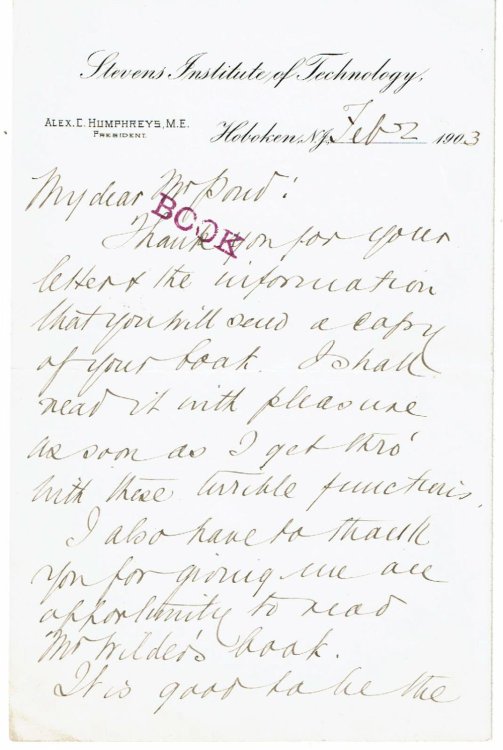 Stevens Institute of Technology.
ALEX. C. HUMPHREYS, M.E.
PRESIDENT.
Hoboken, N.J. Feb 2 1903
My dear Mr
BOOK
Thank you for your
letter & the information
that you will send a copy
of your book. I shall
read it with pleasure
as soon as I get thro'
with these terrible functions.
I also have to thank
you for giving me an
opportunity to read
Mr Wilder's book.
It is good to be the